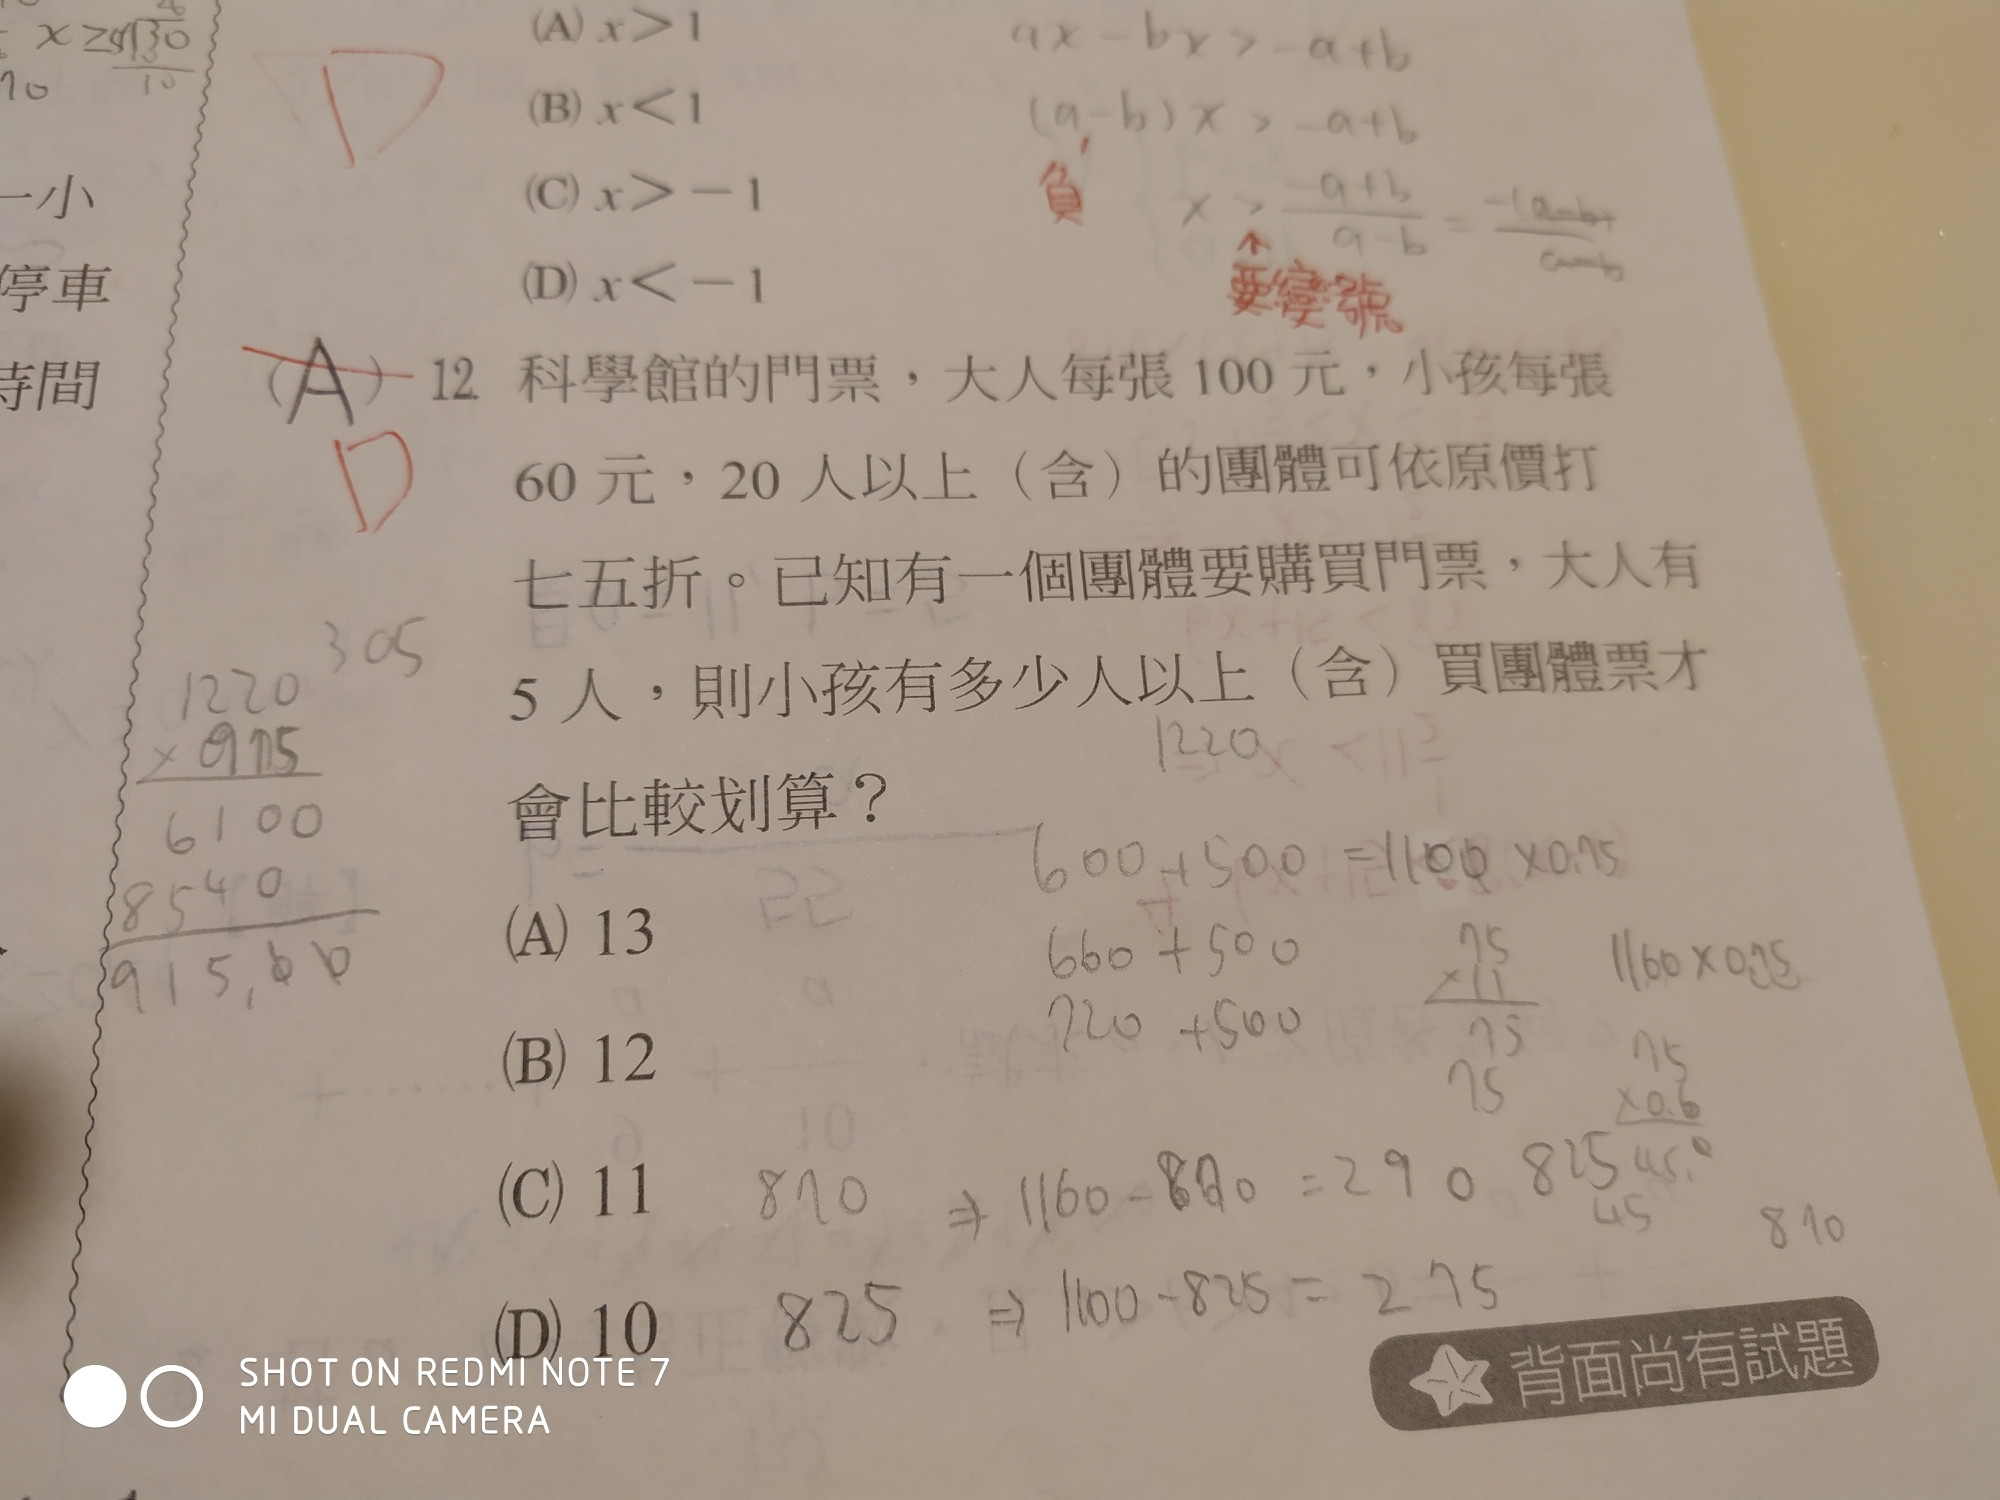 x≥
130
10
10
一小
停車
時間
D
(A) x＞1
(B) x＜1
(C) x＞－1
(D) x＜－1
ax－bx＞－a+b
(a－b)x＞－a+b
負
x＞ －a+b / a－b = －(a－b) / a－b
↑
要變號
(A) 12 科學館的門票，大人每張 100 元，小孩每張
D
60 元，20 人以上（含）的團體可依原價打
七五折。已知有一個團體要購買門票，大人有
5 人，則小孩有多少人以上（含）買團體票才
會比較划算？
305
1220
×075
6100
8540
915,00
1220
600+500 =1100 ×0.75
660+500
720+500
75
×11
75
75
1160×0.75
75
×0.6
45.0
825
45
870
(A) 13
(B) 12
(C) 11 870 ⇒ 1160-870 =290
(D) 10 825 ⇒ 1100-825= 275
背面尚有試題
SHOT ON REDMI NOTE 7
MI DUAL CAMERA